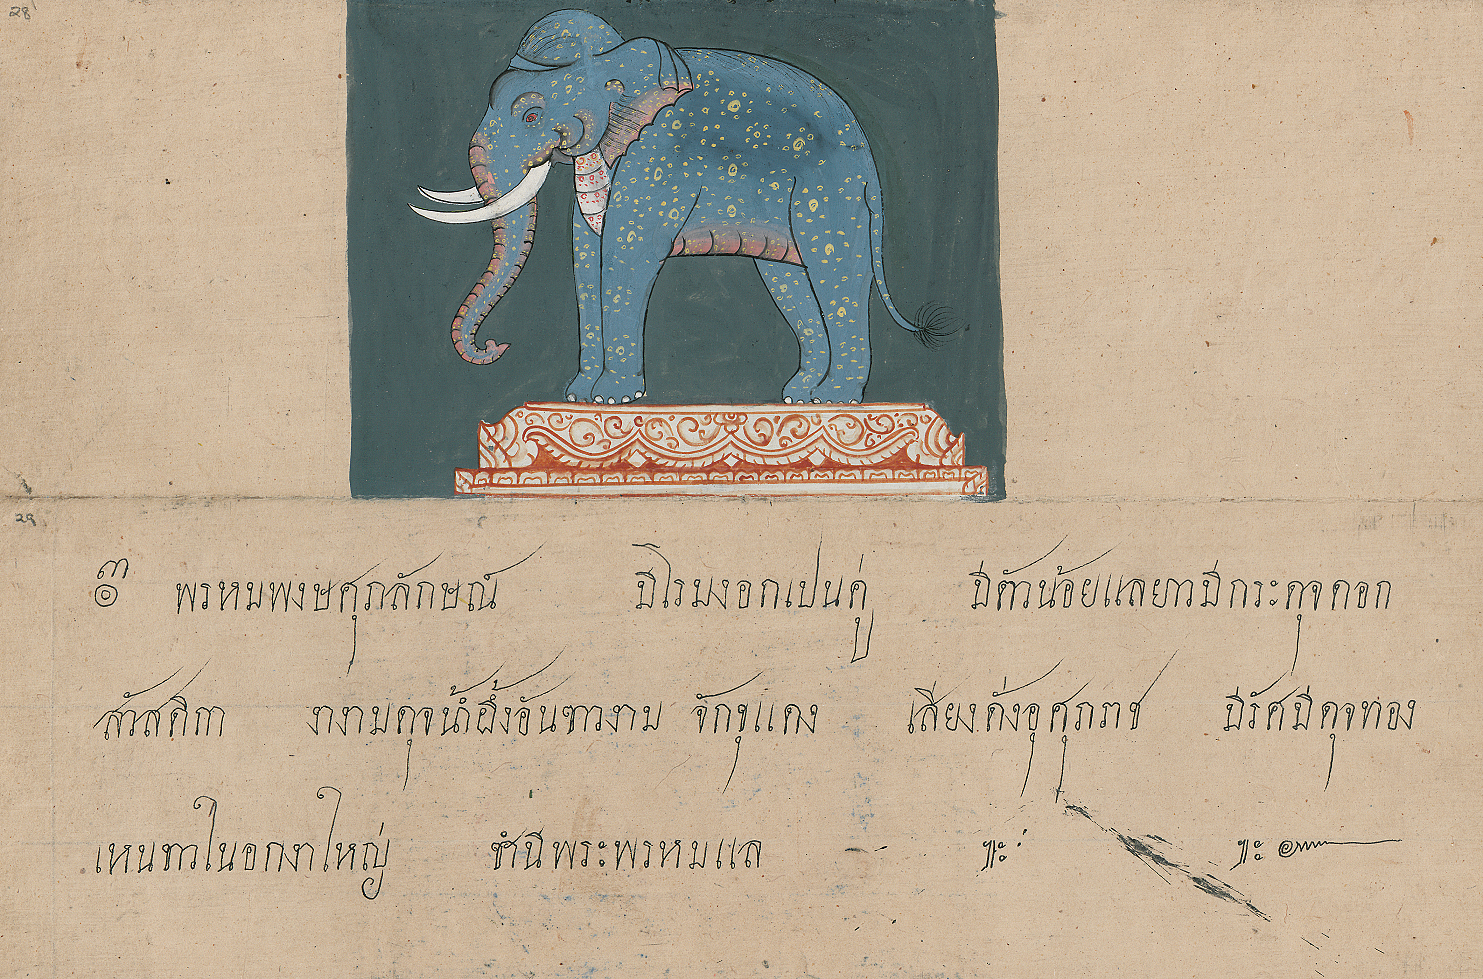 28
29
๏ พรหมพงษศุภลักษณ์ มีโรมงอกเปนคู่ มีตัวน้อยแลยาวมีกระดุจดอก
งางามดุจน้ำผึ้งอันขาวงาม จักขุแดง เสียงดั่งอุศุภราช มีรัศมีดุจทอง
เหนขาวในอกงาใหญ่ ชำนีพระพรหมแล ๚ะ ๚ะ๛